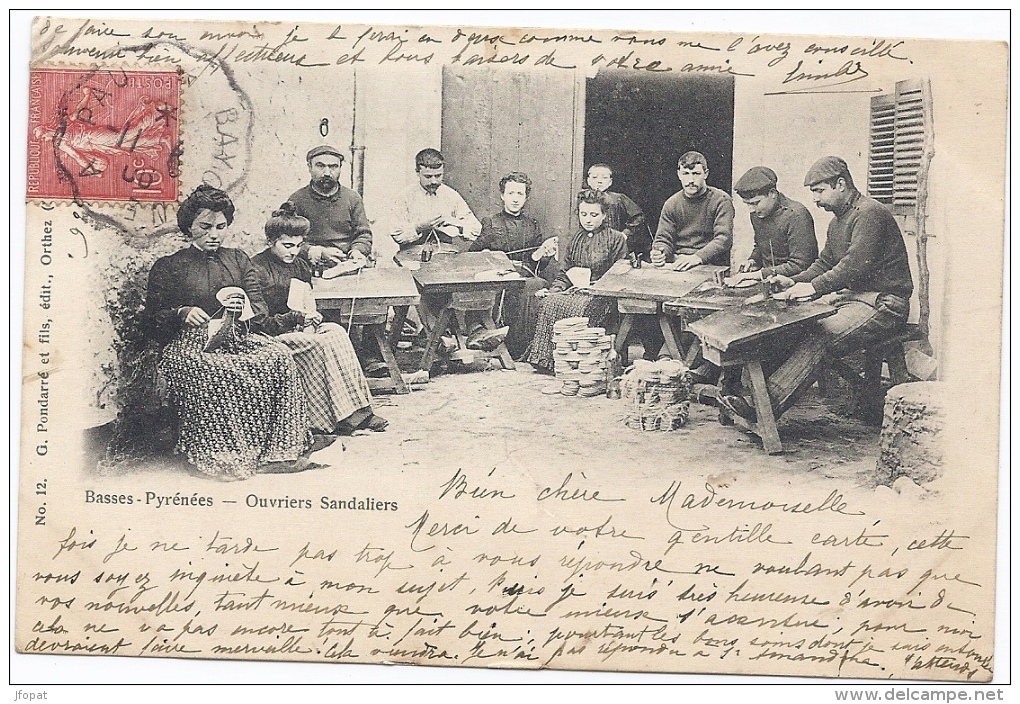 de faire son envoi je le ferai en douse comme vous me l'avez conseillé.
Souvenir bien affectueux et bons baisers de votre amie
REPUBLIQUE FRANÇAISE
POSTES
10c
BAYONNE
11
03
8
No. 12. G. Pondarré et fils, édit., Orthez (
Basses-Pyrénées — Ouvriers Sandaliers
Bien chère Mademoiselle
Merci de votre gentille carte, cette
fois je ne tarde pas trop à vous répondre ne voulant pas que
vous soyez inquiète à mon sujet. Puis je suis très heureuse d'avoir de
vos nouvelles, tant mieux que votre mieux s'accentue, pour moi
cela ne va pas encore tout à fait bien, pourtant les bons soins dont je suis entourée
devraient faire merveille. Cela viendra. Je n'ai pas répondu à
j'attends
jfopat
www.delcampe.net